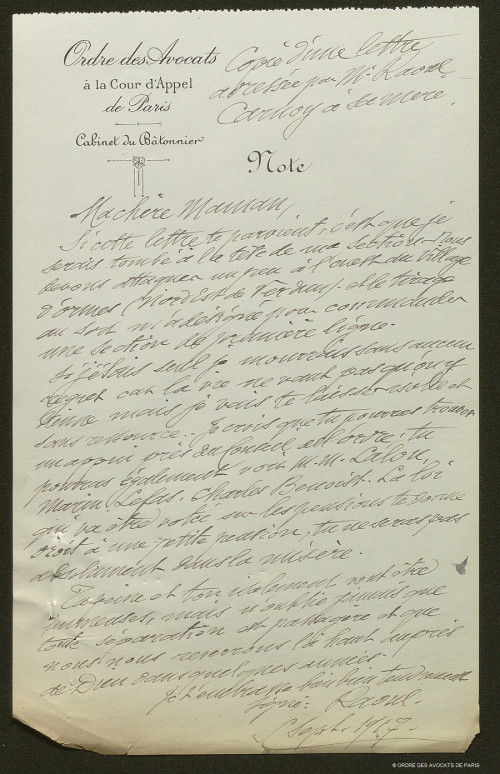 Ordre des Avocats
à la Cour d'Appel
de Paris
Cabinet du Bâtonnier
Copie d'une lettre
adressée par Mr Raoul
Carnoy à sa mère.
Note
Ma chère Maman,
Si cette lettre te parvient, c'est que je
serais tombé à la tête de ma section. Nous
devons attaquer un peu à l'ouest du village
d'Ormes (Nord Est de Verdun) et le tirage
au sort m'a désigné pour commander
une section de première ligne.
Si j'étais seul je mourrais sans aucun
regret car la vie ne vaut pas qu'on y
tienne mais je vais te laisser isolée et
sans ressource. Je crois que tu pourras trouver
un appui près du Conseil de l'ordre; tu
pourras également voir M.M. Lalou,
Marin, Lefas, Charles Benoist. La loi
qui va être votée sur les pensions te donne
droit à une petite pension, tu ne seras pas
absolument dans la misère.
Ta peine et ton isolement vont être
immenses, mais n'oublie jamais que
toute séparation est passagère et que
nous nous reverrons là haut auprès
de Dieu dans quelques années.
Je t'embrasse bien bien tendrement
signé: Raoul.
Sept. 1917
© ORDRE DES AVOCATS DE PARIS